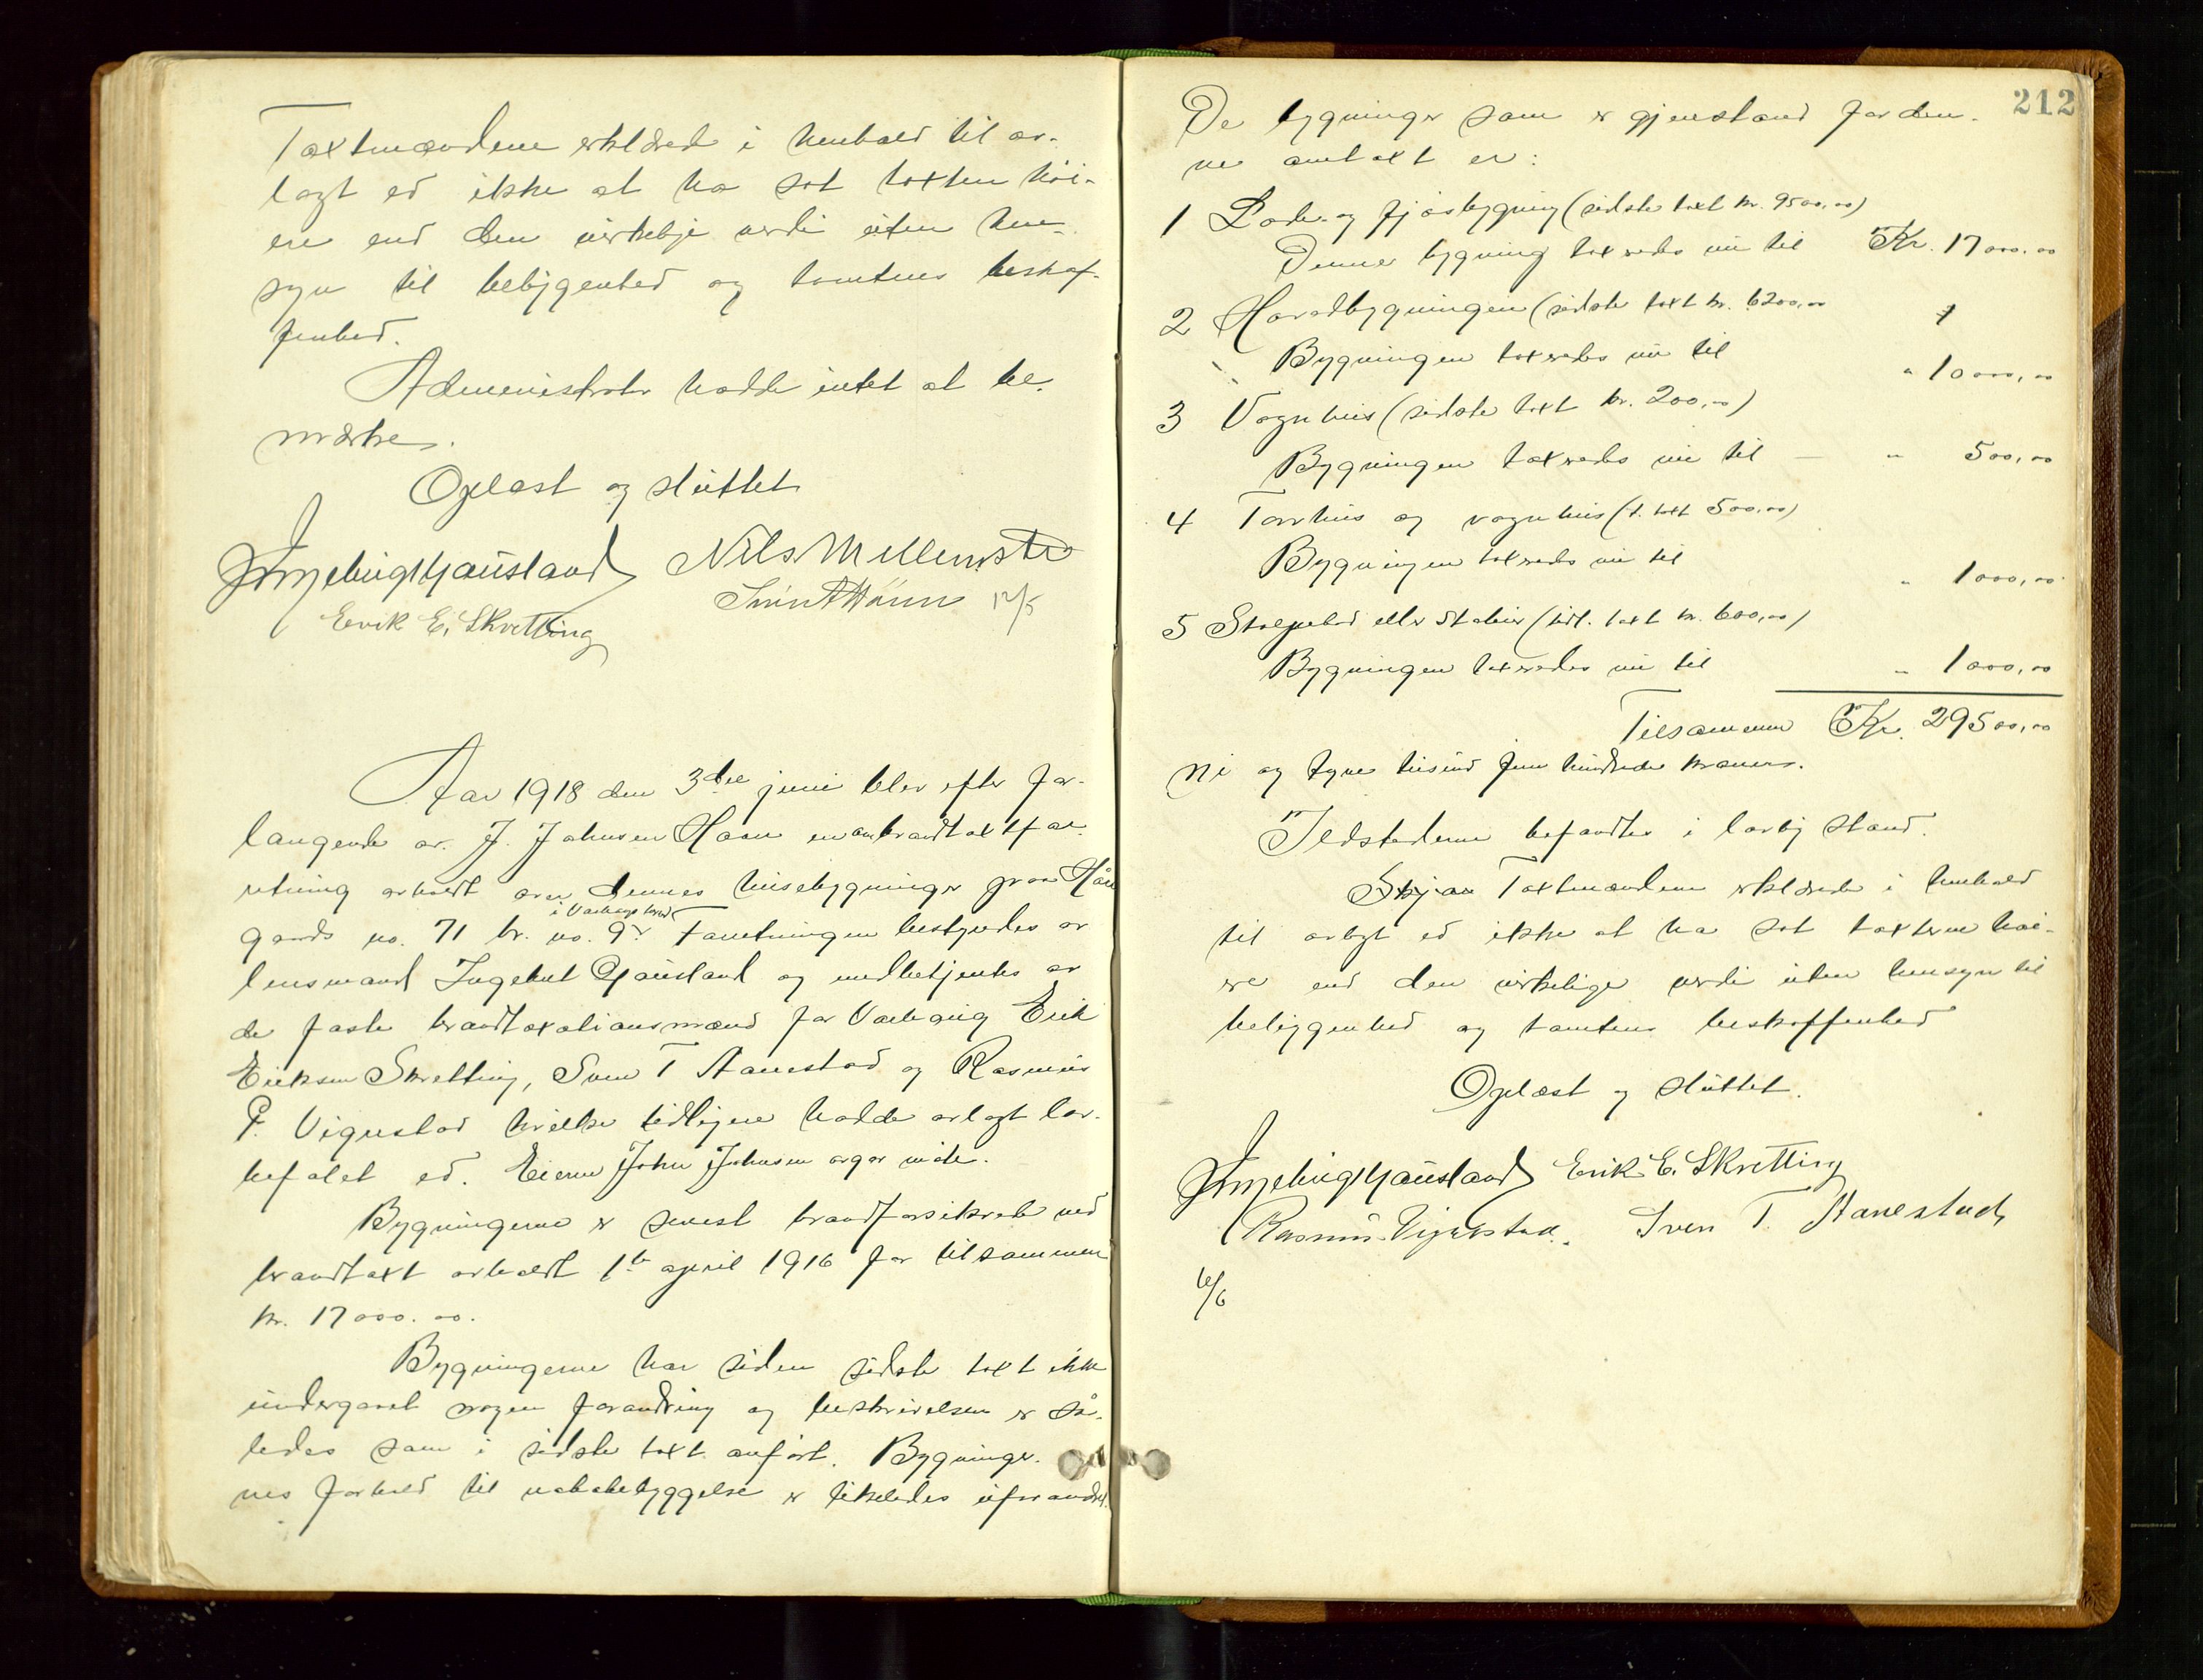 Taxtmændene erklærede i henhold til av-
lagt ed ikke at ha sat taxten høi-
ere end den virkelige verdi uten hen-
syn til beliggenhed og tomtens beskaf-
fenhed.
Administrator hadde intet at be-
mærke.
Oplæst og sluttet
Ingebrigt Gausland Nils Mellemstrø
12/5
Erik E. Skretting
Aar 1918 den 3die juni blev efter for-
langende av J. Johnsen Haar en ombrandtaxtfor-
retning avholdt over dennes husebygninger paa Håar
i Varhaug herred
gaards no. 71 br. no. 9. Forretningen bestyredes av
lensmand Ingebret Gausland og medbetjentes av
de faste brandtaxationsmænd for Varhaug Erik
Eriksen Skretting, Sven T Aanestad og Rasmus
P. Vigrestad hvilke tidligere hadde avlagt lov-
befalet ed. Eieren John Johnsen avgav møde.
Bygningerne er senest brandforsikrede ved
brandtaxt avholdt 1te april 1916 for tilsammen
kr. 17000.00.
Bygningerne har siden sidste taxt ikke
undergaaet nogen forandring og beskrivelsen er så-
ledes som i sidste taxt anført. Bygninger-
nes forhold til nabobebyggelse er likeledes uforandret.
212
De bygninger som er gjenstand for den-
ne omtaxt er:
1 Lade- og fjøsbygning (sidste taxt kr. 9500,00)
Denne bygning taxeredes nu til Kr. 17000.00
2 Hovedbygningen (sidste taxt kr. 6200,00
Bygningen taxeredes nu til " 10000,00
3 Vognhus (sidste taxt kr. 200,00)
Bygningen taxeredes nu til — " 500,00
4 Torvhus og vognhus (t. taxt 500,00)
Bygningen taxeredes nu til " 1000,00
5 Stolpebod eller stabur (tidl. taxt kr. 600,00)
Bygningen taxeredes nu til " 1000,00
Tilsammen Kr. 29500,00
Ni og tyve tusind fem hundrede kroner.
Ildstederne befandtes i lovlig stand.
Taxtmændene erklærede i henhold
til avlagt ed ikke at ha sat taxterne høi-
ere end den virkelige verdi uten hensyn til
beliggenhed og tomtens beskaffenhed
Oplæst og sluttet.
Ingebrigt Gausland Erik E. Skretting
Rasmus Vigrestad. Sven T. Aanestad,
6/6